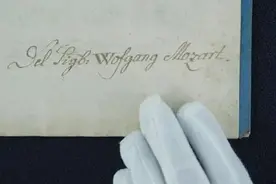 Del Sigr: Wofgang Mozart.